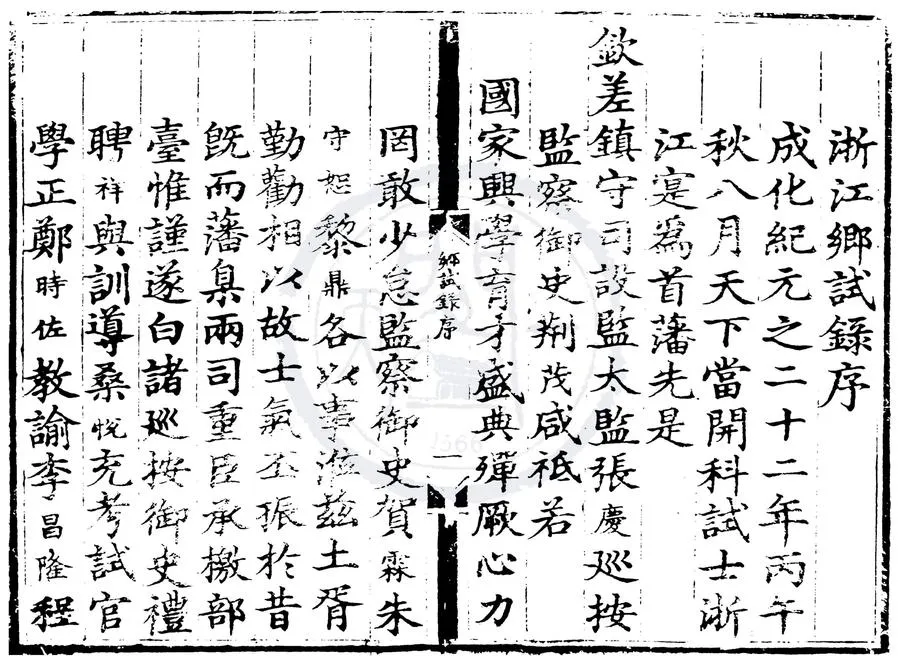 浙江鄉試録序
成化紀元之二十二年丙午
秋八月天下當開科試士浙
江寔爲首藩先是
欽差鎮守司設監太監張慶巡按
監察御史荆茂咸祗若
國家興學育才盛典殫厥心力
鄉試録序
一
罔敢少怠監察御史賀霖朱
守恕黎鼎各以事涖兹土胥
勤勸相以故士氣丕振於昔
既而藩臬兩司重臣承檄部
臺惟謹遂白諸巡按御史禮
聘祥與訓導桑悅充考試官
學正鄭時佐教諭李昌隆程
1566